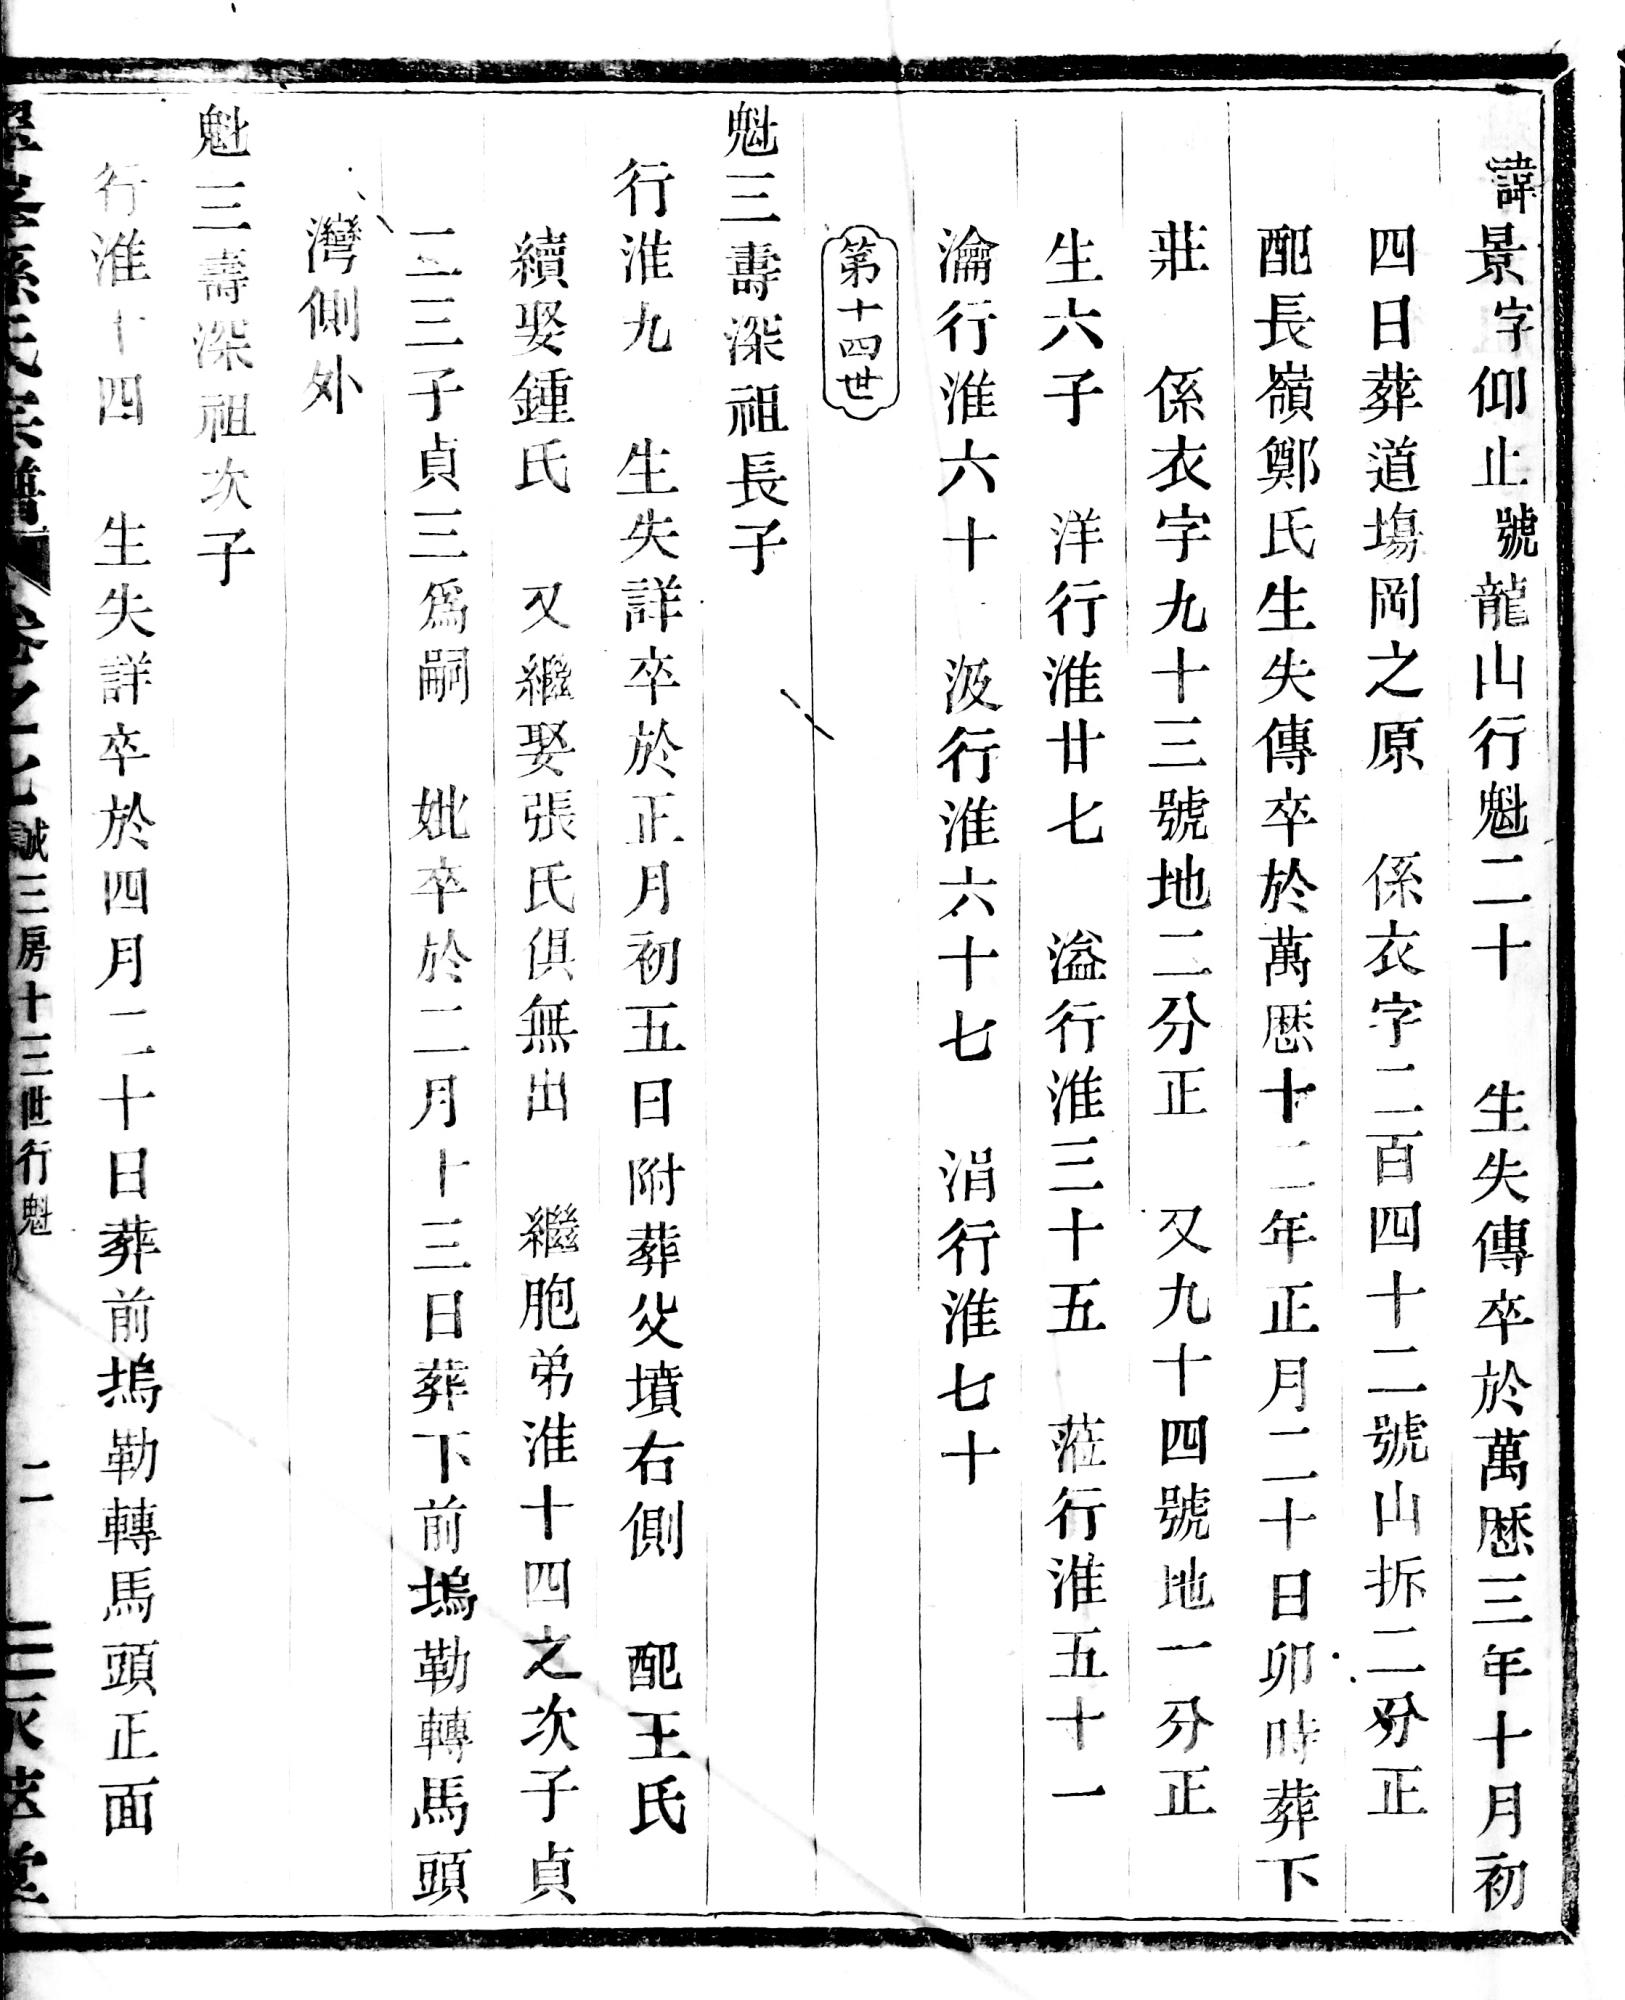 諱景字仰止號龍山行魁二十　生失傳卒於萬歷三年十月初
四日葬道塲岡之原　係衣字二百四十二號山拆二分正
配長嶺鄭氏生失傳卒於萬歷十二年正月二十日卯時葬下
莊　係衣字九十三號地二分正　又九十四號地一分正
生六子　洋行淮廿七　溢行淮三十五　蒞行淮五十一
瀹行淮六十　汲行淮六十七　涓行淮七十
第十四世
魁三壽深祖長子
行淮九　生失詳卒於正月初五日附葬父墳右側　配王氏
續娶鍾氏　又繼娶張氏俱無出　繼胞弟淮十四之次子貞
二三子貞三為嗣　妣卒於二月十三日葬下前塢勒轉馬頭
灣側外
魁三壽深祖次子
行淮十四　生失詳卒於四月二十日葬前塢勒轉馬頭正面
孫氏宗譜 卷之七 誠三房十三世行魁 二 三永萃堂